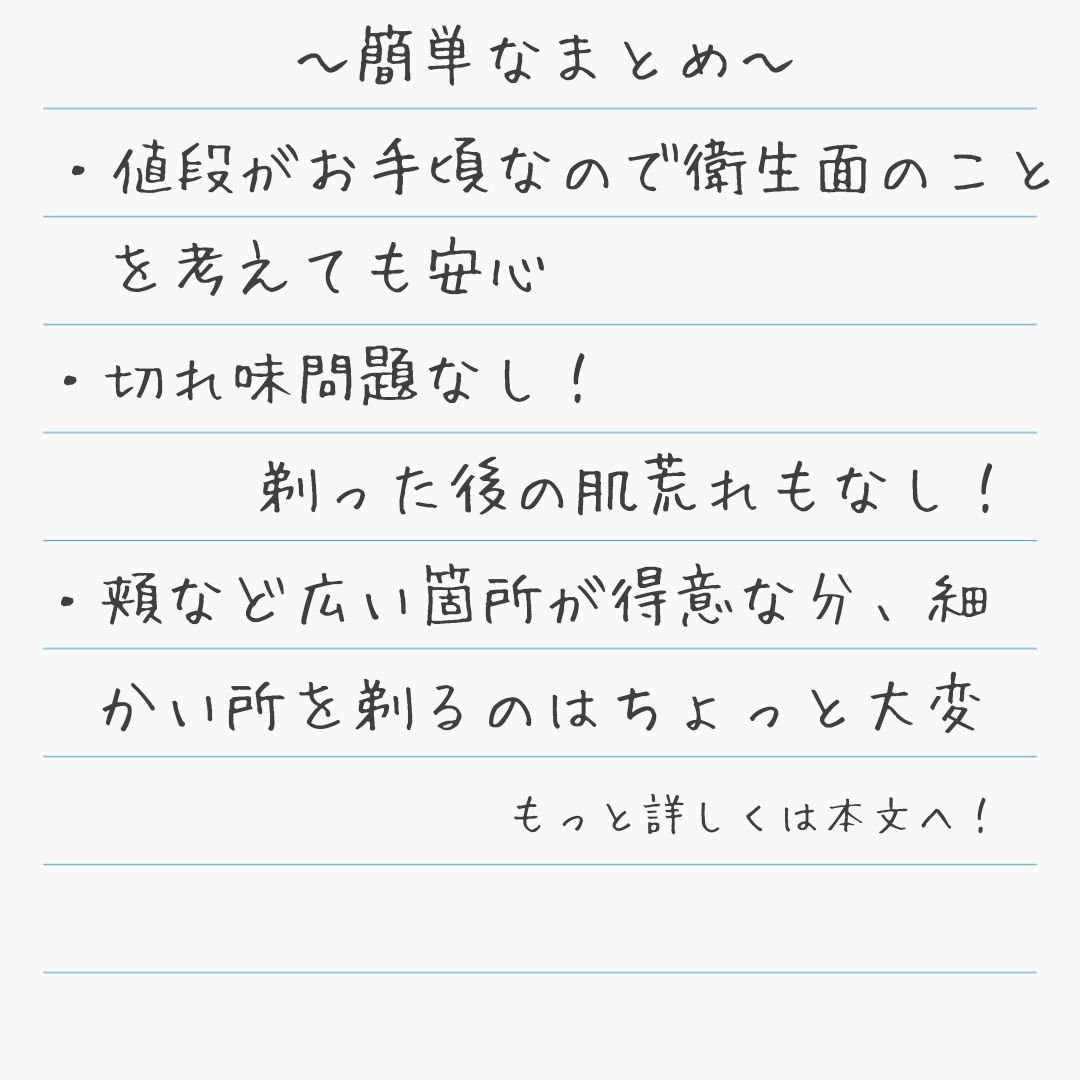 ～簡単なまとめ～
・値段がお手頃なので衛生面のこと
を考えても安心
・切れ味問題なし！
剃った後の肌荒れもなし！
・頬など広い箇所が得意な分、細
かい所を剃るのはちょっと大変
もっと詳しくは本文へ！